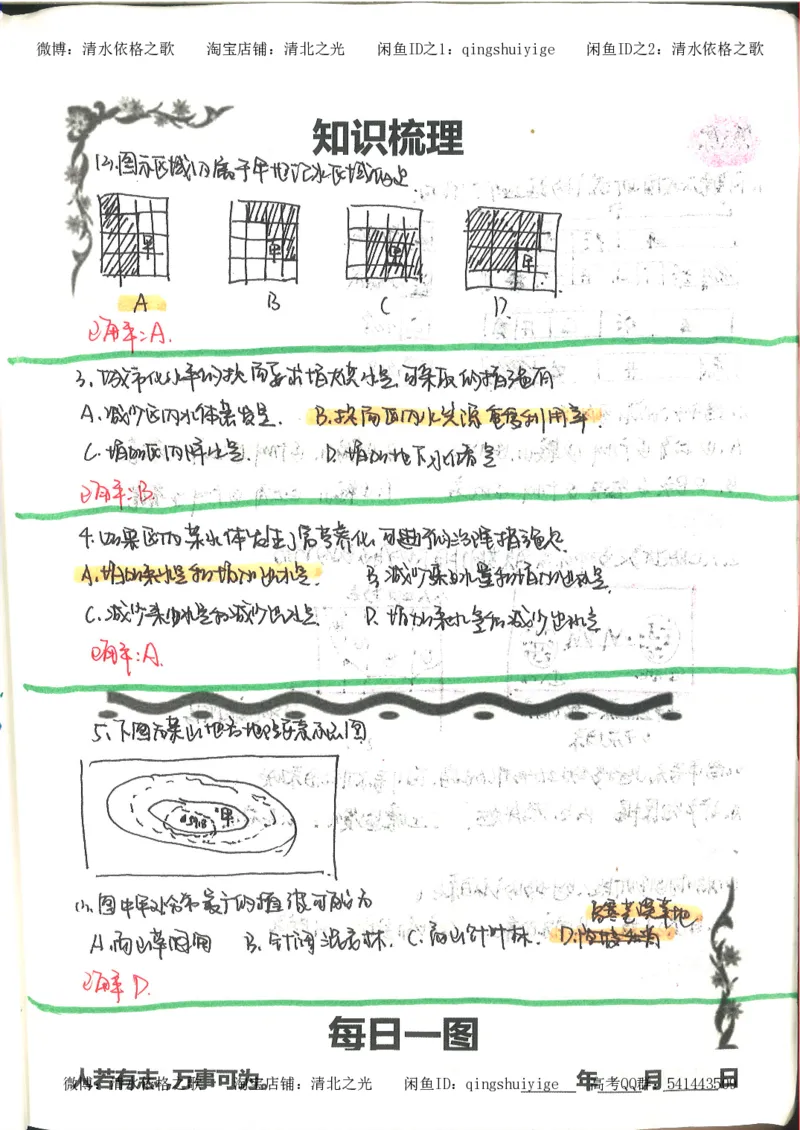 微博：清水依格之歌 淘宝店铺：清北之光 闲鱼ID之1：qingshuiyige 闲鱼ID之2：清水依格之歌
知识梳理
(2).图示区域内属于甲地汇水区域的是
甲 甲 甲 甲
A B C D.
正确率:A.
3.城市化水平的提高要求增大供水量,可采取的措施有
A.减少区内水体蒸发量. B.提高区内水资源重复利用率.
C.增加区内降水量. D.增加地下水储量
正确率:B.
4.如果区内某水体发生了富营养化,可进行的治理措施是
A.增加来水量和增加出水量. B.减少来水量和增加出水量.
C.减少来水量和减少出水量. D.增加来水量和减少出水量
正确率:A.
5.下图为某山地等地理要素示意图
甲
(1).图中甲处分布最广的植被可能为
高寒荒漠草地
A.高山草甸 B.针阔混交林. C.高山针叶林. D.
正确率D.
每日一图
人若有志 万事可为 年 月 日
微博：清水依格之歌 淘宝店铺：清北之光 闲鱼ID：qingshuiyige 高考QQ群：541443509